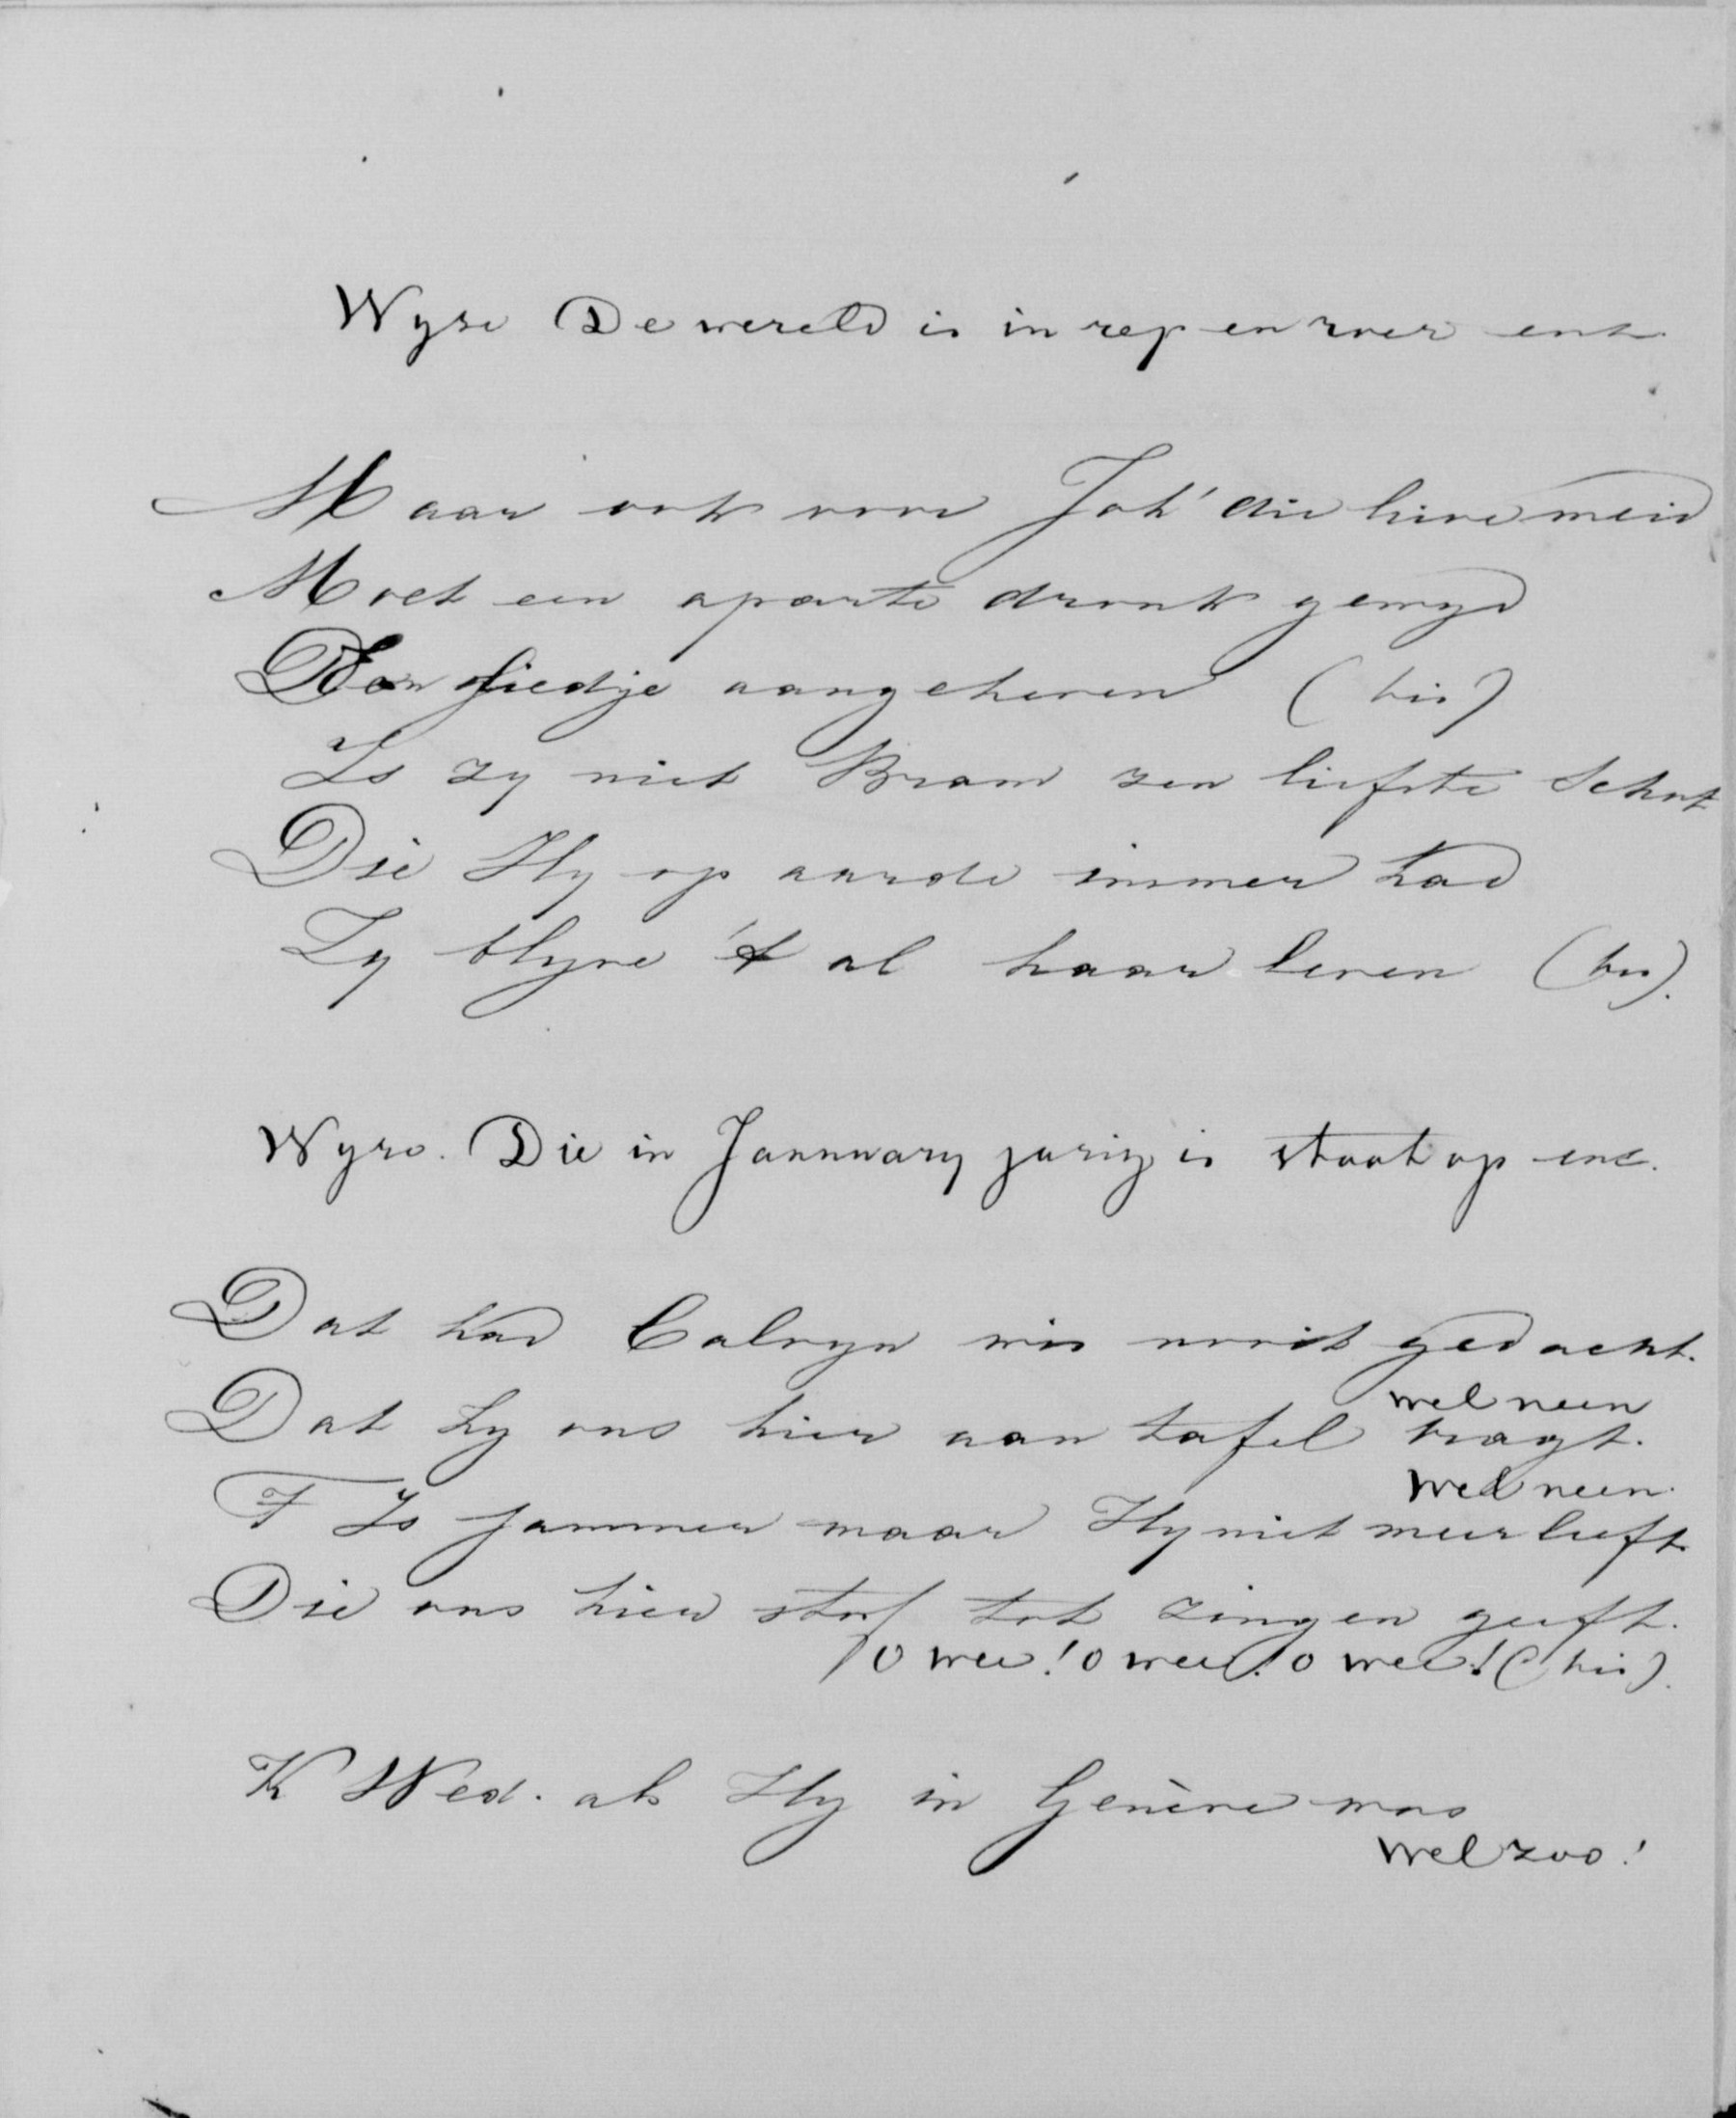 Wyse De wereld is in rep en roer enz.
Maar ook voor Joh' die lieve meid
Moet een aparte dronk gewyd
Een liedje aangeheven (bis)
Is zy niet Bram zen liefste Schat
Die Hy op aarde immer had
Zy blyve 't al haar leven (bis).
Wyse. Die in Jannuary jarig is staat op enz.
Dat had Calvyn wis nooit gedacht.
wel neen
Dat hy ons hier aan tafel bragt.
wel neen.
T Is jammer maar Hy niet meer leeft
Die ons hier stof tot zingen geeft.
O wee! o wee! o wee! (bis).
K Wed. als Hy in Genève was
wel zoo!